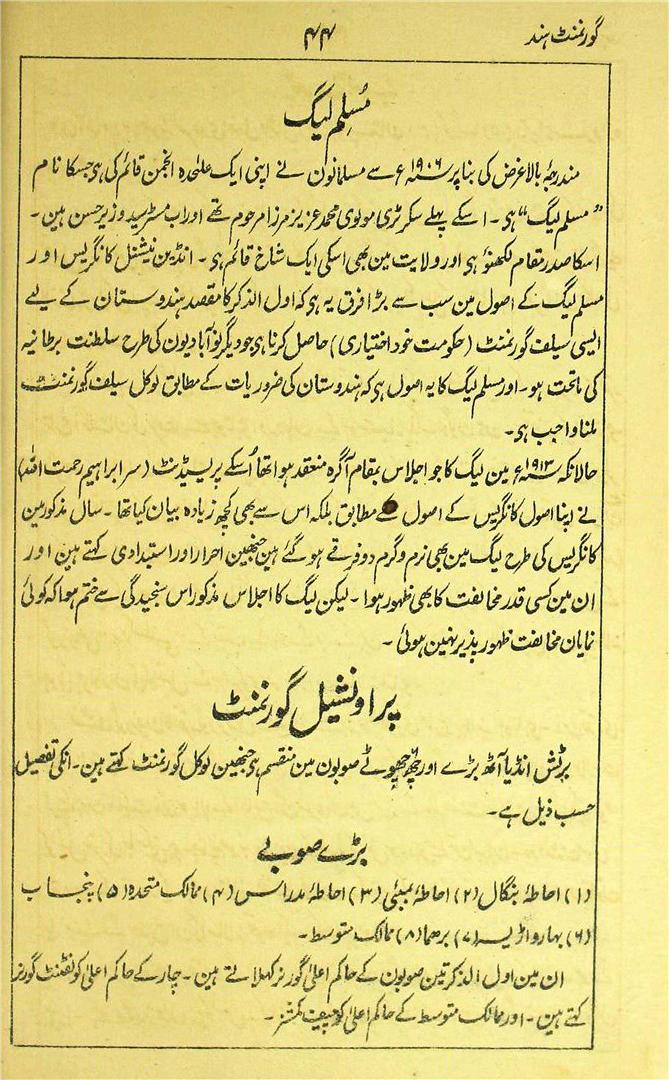 گورنمنٹ ہند
۴۴
مُسلِم لیگ
مندرجۂ بالا غرض کی بنا پر ۱۹۰۶ء سے مسلمانون نے اپنی ایک علٰحدہ انجمن قائم کی ہی جسکا نام
”مسلم لیگ“ ہی۔ اسکے پہلے سکرٹری مولوی محمد عزیز مرزا مرحوم تھے اور اب مسٹر سید وزیر حسن ہین۔
اسکا صدر مقام لکھنؤ ہی اور ولایت مین بھی اسکی ایک شاخ قائم ہی۔ انڈین نیشنل کانگریس اور
مسلم لیگ کے اصول مین سب سے بڑا فرق یہ ہی کہ اول الذکر کا مقصد ہندوستان کے لیے
ایسی سیلف گورنمنٹ (حکومت خود اختیاری) حاصل کرنا ہی جو دیگر نوآبادیون کی طرح سلطنت برطانیہ
کی ماتحت ہو۔ اور مسلم لیگ کا یہ اصول ہی کہ ہندوستان کی ضروریات کے مطابق لوکل سیلف گورنمنٹ
ملنا واجب ہی۔
حالانکہ ۱۹۱۳ء مین لیگ کا جو اجلاس بمقام آگرہ منعقد ہوا تھا اُسکے پریسیڈنٹ (سر ابراہیم رحمت اللہ)
نے اپنا اصول کانگریس کے اصول کے مطابق بلکہ اس سے بھی کچھ زیادہ بیان کیا تھا۔ سال مذکور مین
کانگریس کی طرح لیگ مین بھی نرم و گرم دو فرقے ہو گئے ہین جنھین احرار اور استبدادی کہتے ہین اور
ان مین کسی قدر مخالفت کا بھی ظہور ہوا۔ لیکن لیگ کا اجلاس مذکور اس سنجیدگی سے ختم ہوا کہ کوئی
نمایان مخالفت ظہور پذیر نہین ہوئی۔
پراونشیل گورنمنٹ
برٹش انڈیا آٹھ بڑے اور چھ چھوٹے صوبون مین منقسم ہی جنھین لوکل گورنمنٹ کہتے ہین۔ انکی تفصیل
حسب ذیل ہے۔
بڑے صوبے
(۱) احاطۂ بنگال (۲) احاطۂ بمبئی (۳) احاطۂ مدراس (۴) ممالک متحدہ (۵) پنجاب
(۶) بہار و اڑیسہ (۷) برھما (۸) ممالک متوسط۔
ان مین اول الذکر تین صوبون کے حاکم اعلیٰ گورنر کہلاتے ہین۔ چار کے حاکم اعلیٰ کو لفٹنٹ گورنر
کہتے ہین۔ اور ممالک متوسط کے حاکم اعلیٰ کو چیف کمشنر۔